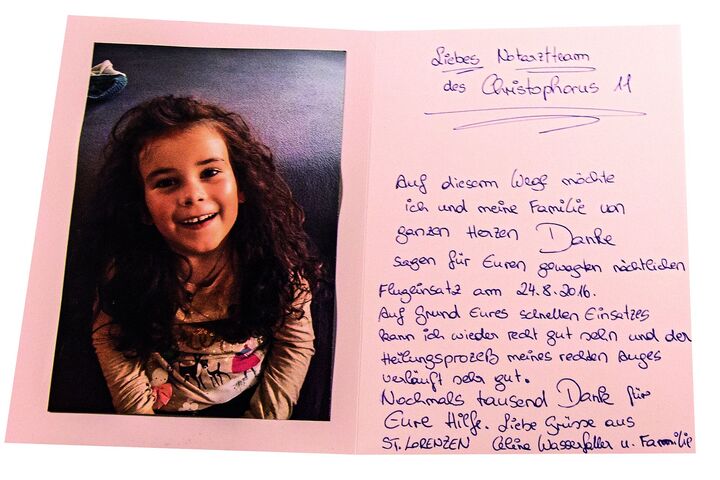 Liebes Notarztteam
des Christophorus 11
Auf diesem Wege möchte
ich und meine Familie von
ganzen Herzen Danke
sagen für Euren gewagten nächtlichen
Flugeinsatz am 24.8.2016.
Auf Grund Eures schnellen Einsatzes
kann ich wieder recht gut sehn und der
Heilungsprozeß meines rechten Auges
verläuft sehr gut.
Nochmals tausend Dank für
Eure Hilfe. Liebe Grüsse aus
ST. LORENZEN Celina Wasserfaller u. Familie